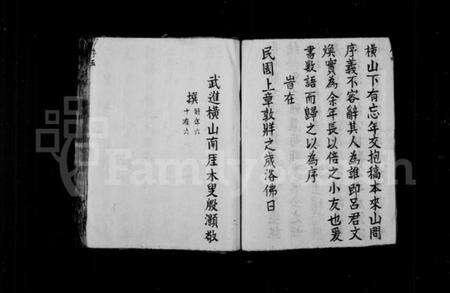 橫山下有忘年交抱稿本來山問
序義不容辭其人為誰即呂君文
煥實為余年長以倍之小友也爰
書數語而歸之以為序
旹在
民國上章敦牂之歲浴佛日
武進橫山南厓木叟殷灝敬
撰 時年六十有六